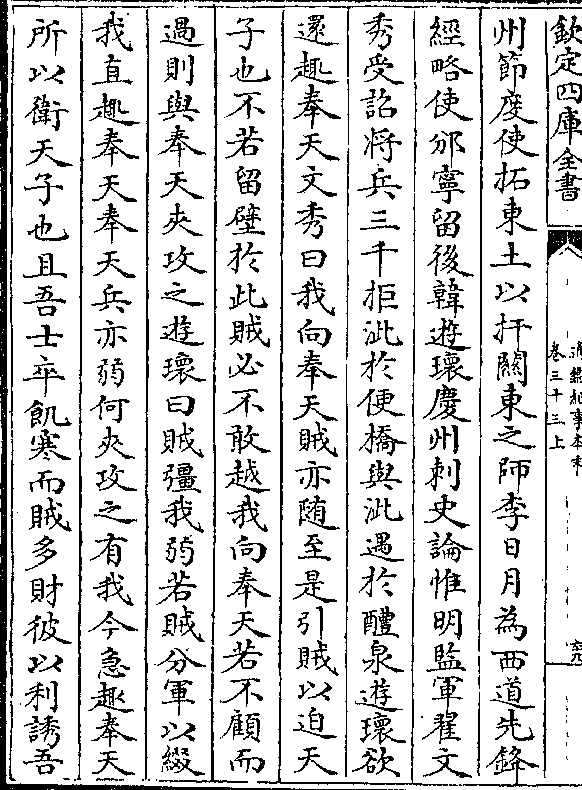 欽定四庫全書
通鑑紀事本末
卷三十三上
州節度使拓東土以扞關東之師李日月為西道先鋒
經略使邠寧留後韓遊瓌慶州刺史論惟明監軍翟文
秀受詔將兵三千拒泚於便橋與泚遇於醴泉遊瓌欲
還趣奉天文秀曰我向奉天賊亦隨至是引賊以迫天
子也不若留壁於此賊必不敢越我向奉天若不顧而
過則與奉天夾攻之遊瓌曰賊彊我弱若賊分軍以綴
我直趣奉天奉天兵亦弱何夾攻之有我今急趣奉天
所以衛天子也且吾士卒飢寒而賊多財彼以利誘吾